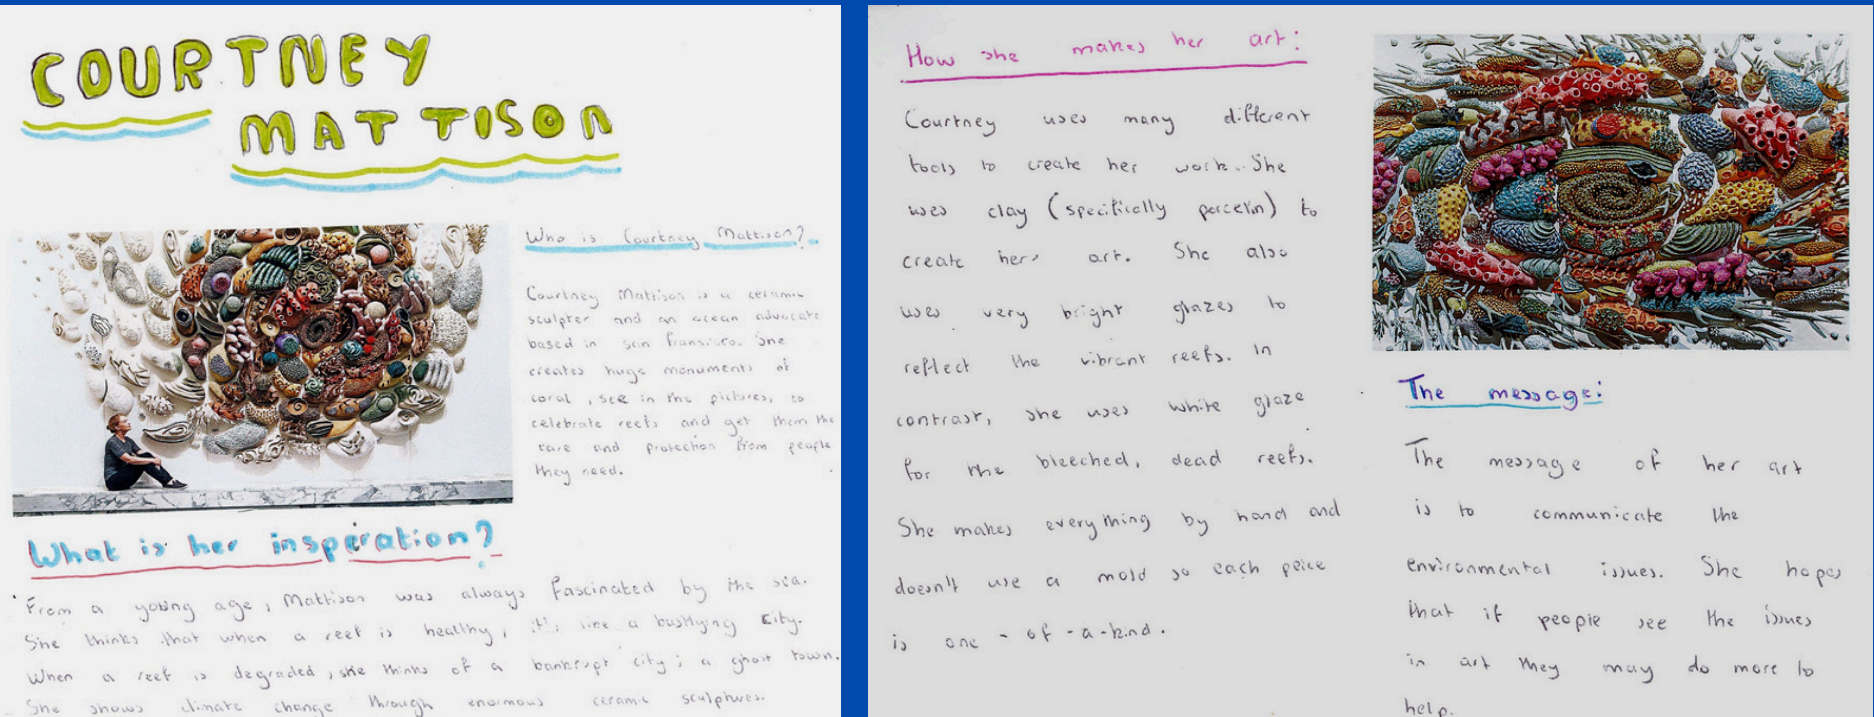 COURTNEY
MATTISON
Who is Courtney Mattison?
Courtney Mattison is a ceramic
sculpter and an ocean advocate
based in san fransisco. She
creates huge monuments of
coral, see in the pictures, to
celebrate reefs and get them the
care and protection from people
they need.
What is her inspiration?
From a young age, Mattison was always fascinated by the sea.
She thinks that when a reef is healthy, it's like a bustlying city.
When a reef is degraded, she thinks of a bankrupt city; a ghost town.
She shows climate change through enormous ceramic sculptures.
How she makes her art:
Courtney uses many different
tools to create her work. She
uses clay (specifically porcelin) to
create hers art. She also
uses very bright glazes to
reflect the vibrant reefs. In
contrast, she uses white glaze
for the bleached, dead reefs.
She makes everything by hand and
doesn't use a mold so each peice
is one-of-a-kind.
The message:
The message of her art
is to communicate the
environmental issues. She hopes
that if people see the issues
in art they may do more to
help.